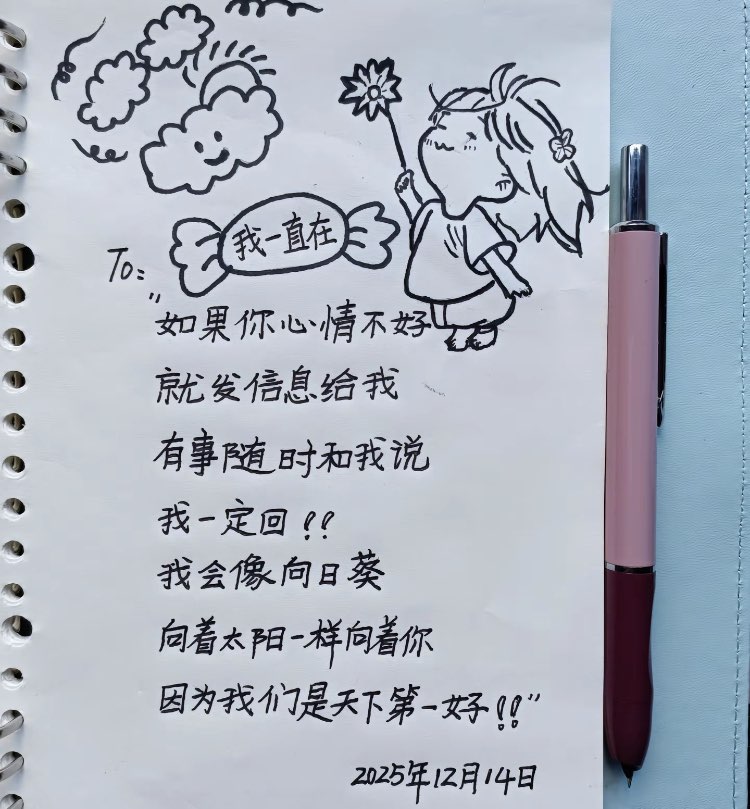 我一直在
To:
"如果你心情不好
就发信息给我
有事随时和我说
我一定回!!
我会像向日葵
向着太阳一样向着你
因为我们是天下第一好!!"
2025年12月14日